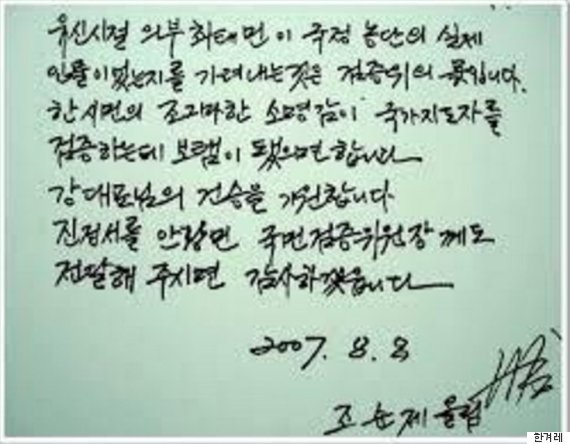 유신시절 의부 최태민이 국정 농단의 실제
인물이었는지를 가려내는것은 검증위의 몫입니다.
한 시민의 조그마한 소명감이 국가지도자를
검증하는데 보탬이 됐으면 합니다
강대표님의 건승을 기원합니다
진정서를 안강민 국민검증위원장께도
전달해 주시면 감사하겠읍니다
2007. 8. 8
조순제 올림
한겨레